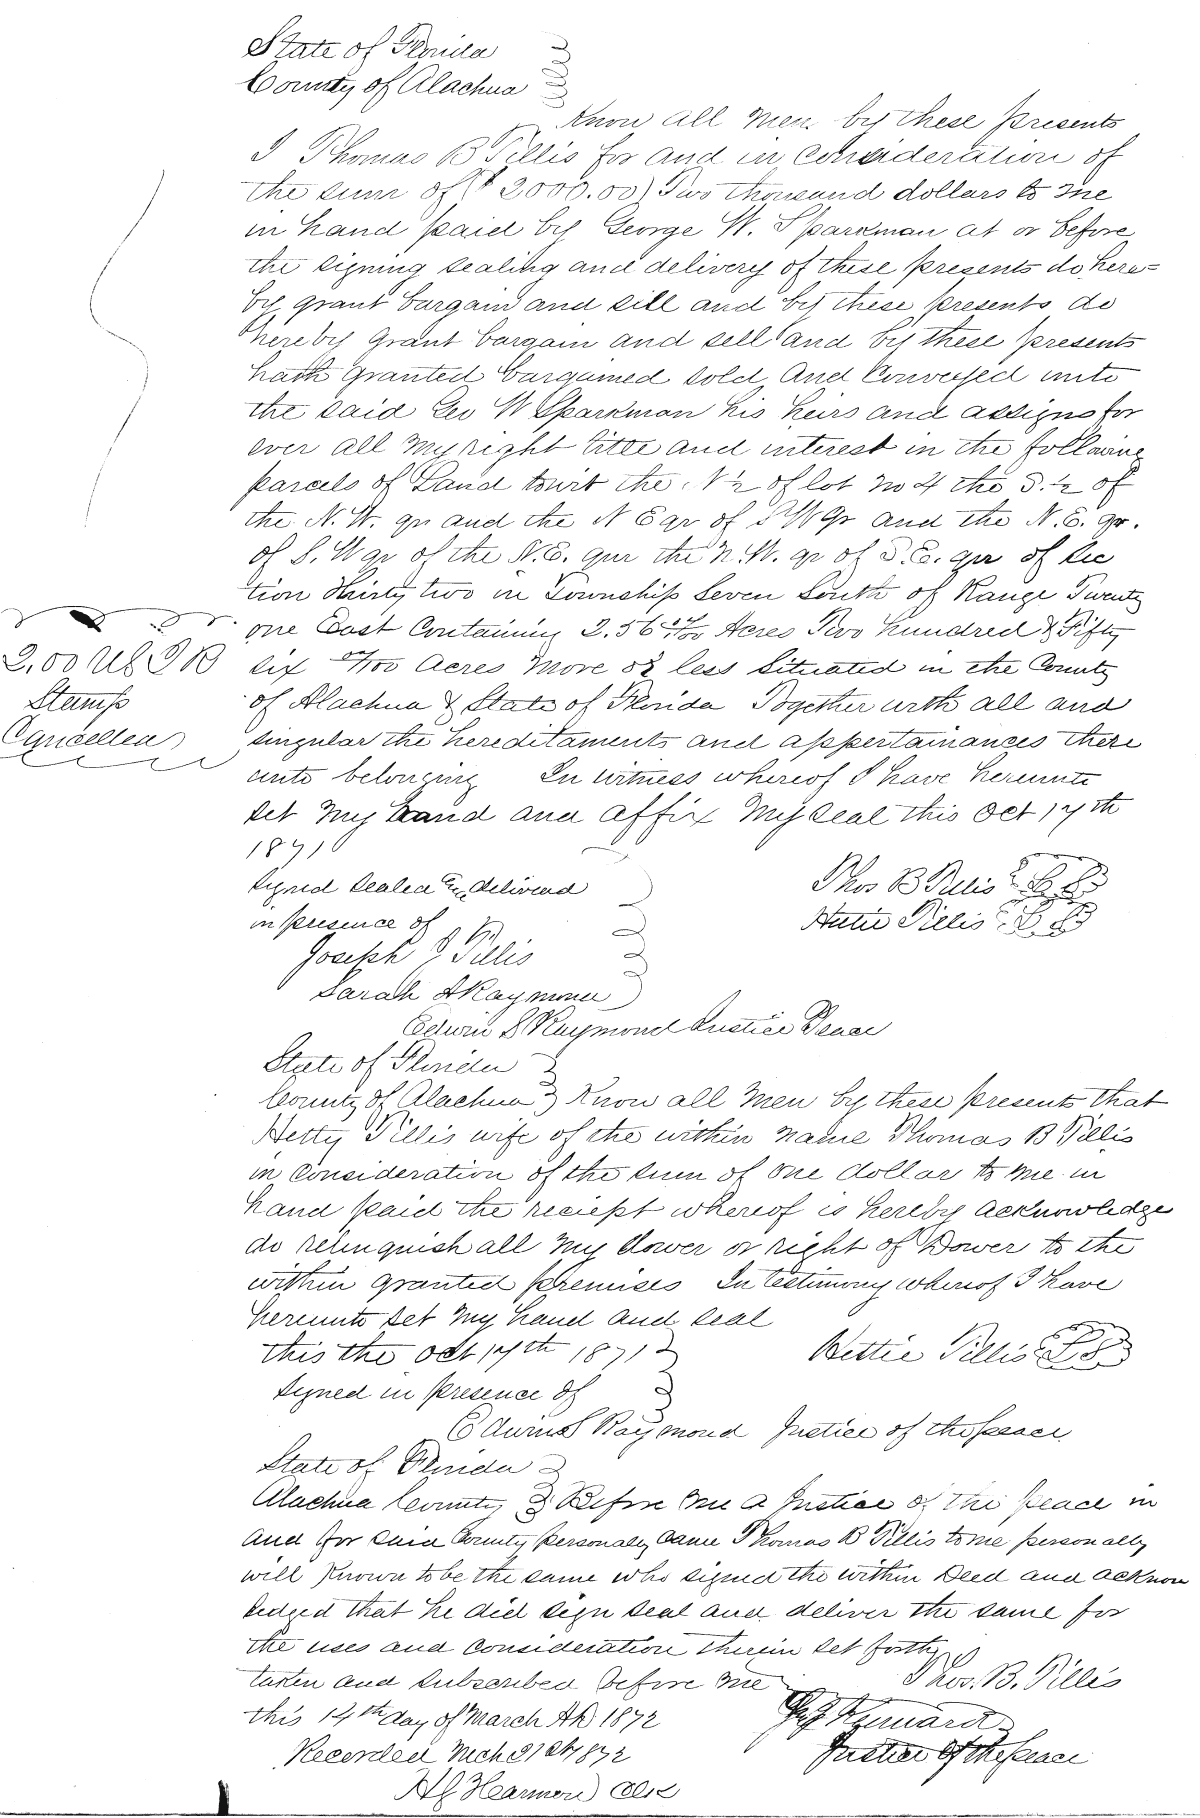 State of Florida
County of Alachua
Know all men by these presents
I Thomas B Tillis for and in consideration of
the sum of ($2000.00) Two thousand dollars to me
in hand paid by George W. Sparkman at or before
the signing sealing and delivery of these presents do here=
by grant bargain and sill and by these presents do
hereby grant bargain and sell and by these presents
hath granted bargained sold and conveyed unto
the said Geo W Sparkman his heirs and assigns for
ever all my right title and interest in the following
parcels of Land towit the N ½ of lot no 4 the S. ½ of
the N. W. qr and the N E qr of S W qr and the N. E. qr.
of S. W qr of the N. E. qur the N. W. qr of S. E. qur of Sec
tion Thirty two in Township Seven South of Range Twenty
one East Containing 2.56 /100 Acres Two hundred & Fifty
six /100 Acres more or less Situated in the County
of Alachua & State of Florida Together with all and
singular the hereditaments and appertainances there
unto belonging In witness whereof I have hereunto
set my hand and affix my seal this Oct 17th
1871
2.00 U S I R
Stamp
Cancelled
Signed sealed & delivered
in presence of
Thos B Tillis L S
Hettie Tillis L S
Joseph J Tillis
Sarah A Raymond
Edwin S Raymond Justice Peace
State of Florida
County of Alachua Know all men by these presents that
Hetty Tillis wife of the within name Thomas B Tillis
in consideration of the sum of one dollar to me in
hand paid the reciept whereof is hereby acknowledge
do relinquish all my dower or right of Dower to the
within granted premises In testimony whereof I have
hereunto set my hand and seal
this the Oct 17th 1871 Hettie Tillis L S
Signed in presence of
Edwin S Raymond Justice of the peace
State of Florida
Alachua County Before me a Justice of the peace in
and for said County personaly came Thomas B Tillis to me personally
will known to be the same who signed the within Deed and acknow
ledged that he did sign seal and deliver the same for
the uses and consideration therein set forth
taken and subscribed before me Thos. B. Tillis
this 14th day of March AD 1872
Justice of the peace
Recorded Mch 21st 1872
Hearmon Clk